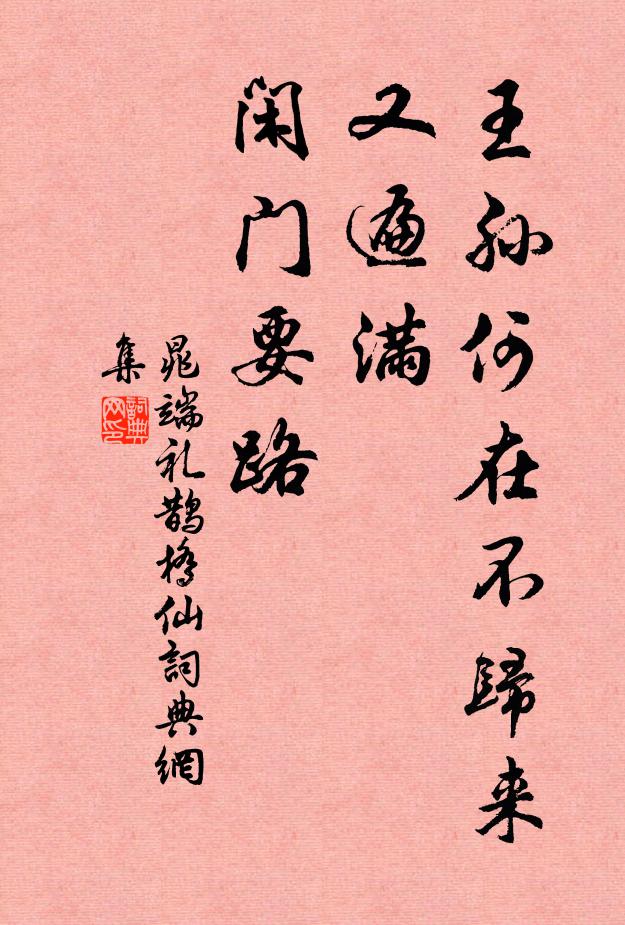 王孙何在不歸来
又遍满
闲门要路
晁端礼鹊橋仙詞典網
集
詞典
网印